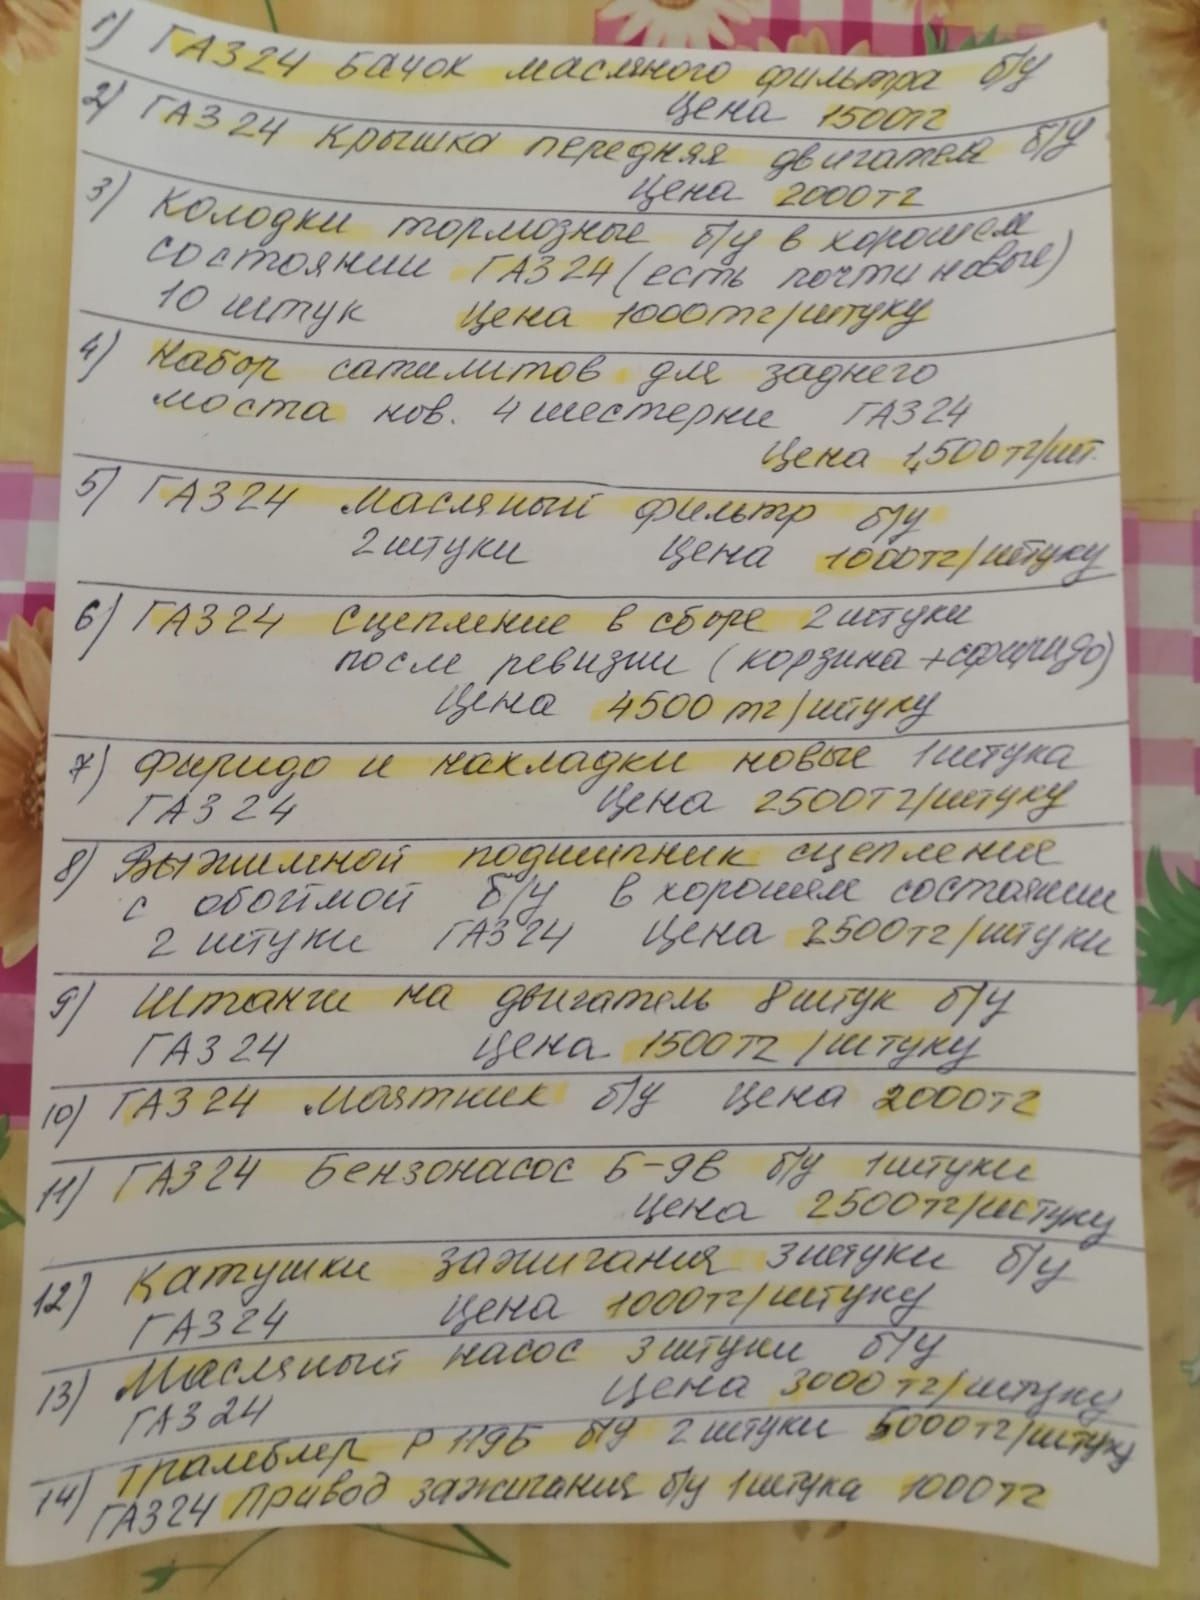 1) ГАЗ 24 бачок масляного фильтра б/у
Цена 1500тг
2) ГАЗ 24 Крышка передняя двигателя б/у
Цена 2000тг
3) Колодки тормозные б/у в хорошем
состоянии ГАЗ 24 (есть почти новые)
10 штук Цена 1000тг/штуку
4) Набор сателитов для заднего
моста нов. 4 шестерни ГАЗ 24
Цена 1,500тг/шт.
5) ГАЗ 24 Масляный фильтр б/у
2 штуки Цена 1000тг/штуку
6) ГАЗ 24 Сцепление в сборе 2 штуки
после ревизии (корзина + сфиридо)
Цена 4500 тг/штуку
7) Фиридо и накладки новые 1 штука
ГАЗ 24 Цена 2500тг/штуку
8) Выжимной подшипник сцепление
с обоймой б/у в хорошем состоянии
2 штуки ГАЗ 24 Цена 2500тг/штуки
9) Штанги на двигатель 8 штук б/у
ГАЗ 24 цена 1500тг/штуку
10) ГАЗ 24 Маятник б/у Цена 2000тг
11) ГАЗ 24 Бензонасос Б-9В б/у 1 штуки
Цена 2500тг/штуку
12) Катушки зажигания 3 штуки б/у
ГАЗ 24 Цена 1000тг/штуку
13) Масляный насос 3 штуки б/у
ГАЗ 24 Цена 3000тг/штуку
14) Трамблер Р 119Б б/у 2 штуки 5000тг/штуку
ГАЗ 24 Привод зажигания б/у 1 штука 1000тг